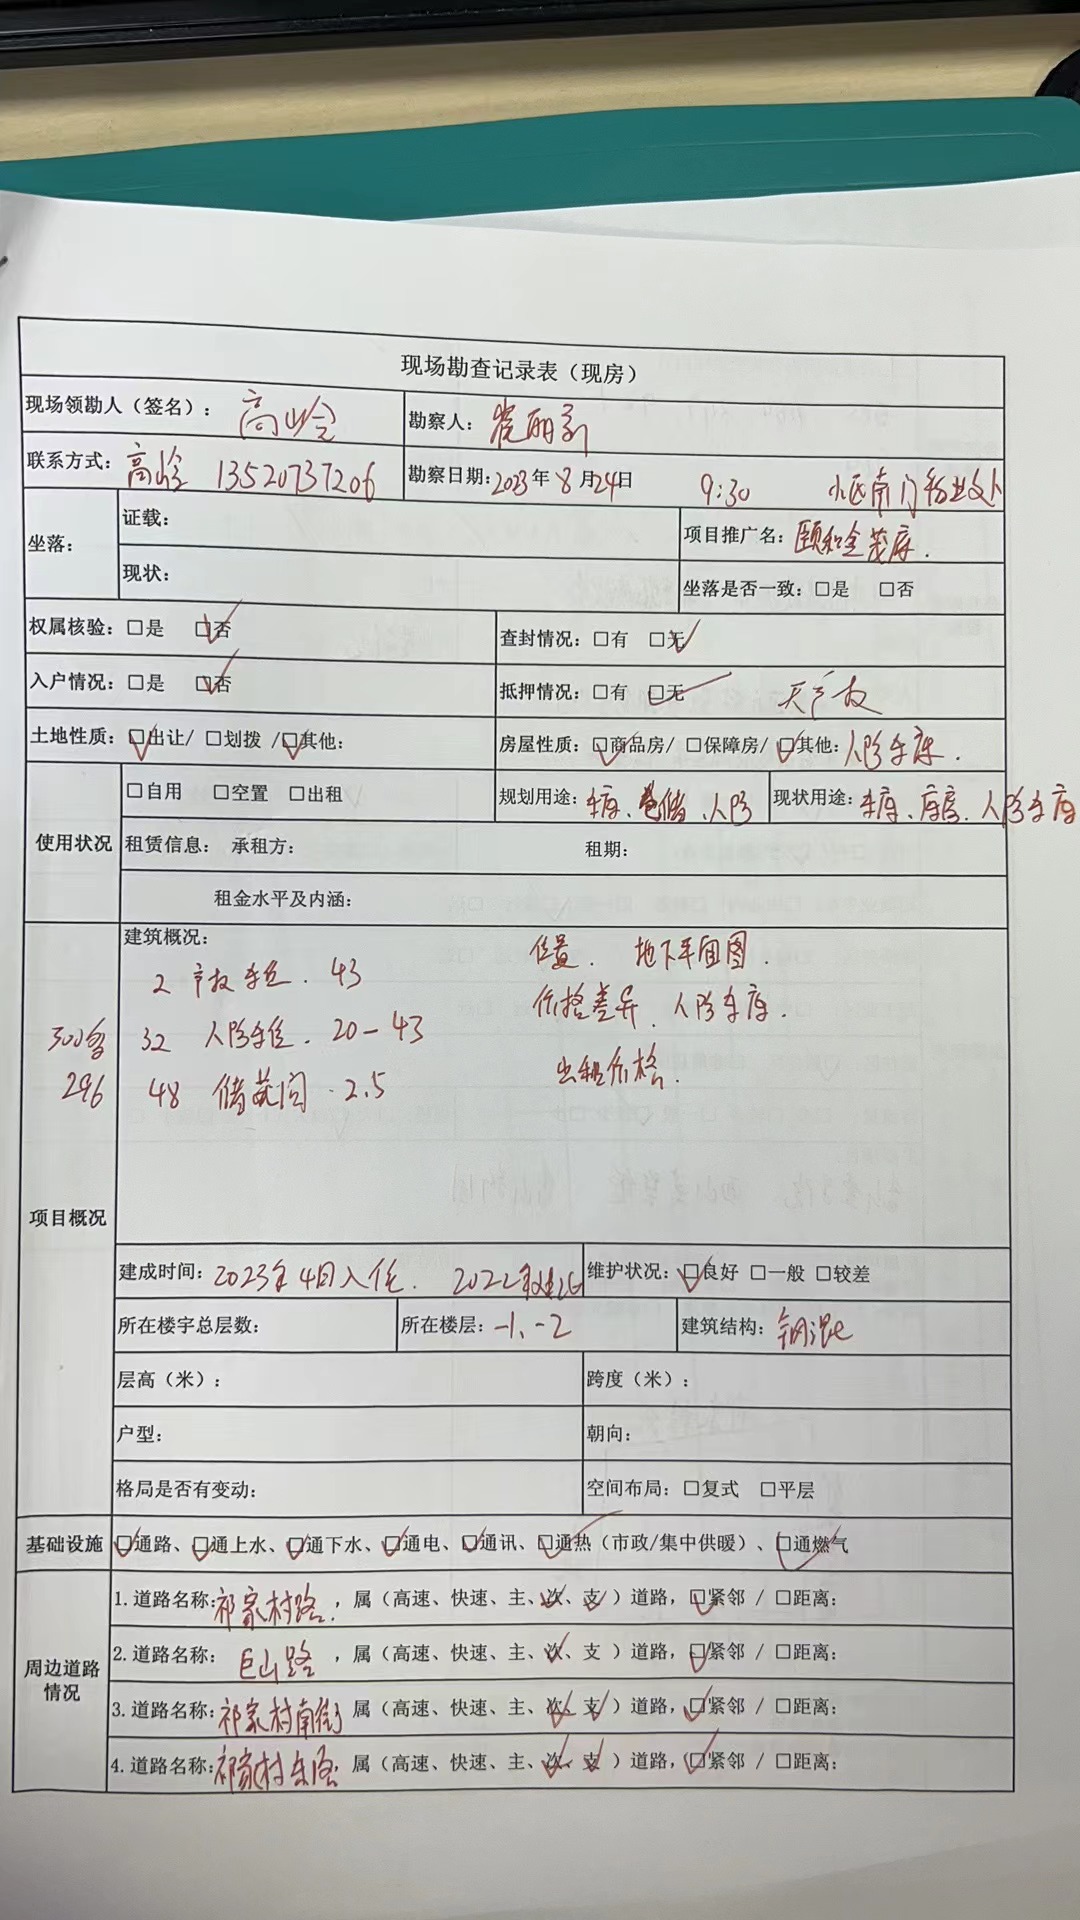 现场勘查记录表（现房）
现场领勘人（签名）： 勘察人：
联系方式： 13520737206 勘察日期：2023年8月24日 9:30 小区南门物业处
坐落： 证载： 项目推广名：颐和金茂府.
现状： 坐落是否一致：□是 □否
权属核验：□是 □否 查封情况：□有 □无
入户情况：□是 □否 抵押情况：□有 □无
土地性质：□出让/ □划拨 /□其他： 房屋性质：□商品房/ □保障房/ □其他：人防车库.
使用状况 □自用 □空置 □出租 规划用途：车库、仓储、人防 现状用途：车库、库房、人防车库
租赁信息： 承租方： 租期：
租金水平及内涵：
项目概况 建筑概况： 位置. 地下平面图.
2 产权车位. 43 价格差异. 人防车库.
300多 32 人防车位. 20-43
296 48 储藏间. 2.5 出租价格.
建成时间：2023年4月入住. 2022年建成 维护状况：□良好 □一般 □较差
所在楼宇总层数： 所在楼层：-1、-2 建筑结构：钢混
层高（米）： 跨度（米）：
户型： 朝向：
格局是否有变动： 空间布局：□复式 □平层
基础设施 □通路、□通上水、□通下水、□通电、□通讯、□通热（市政/集中供暖）、□通燃气
周边道路情况 1.道路名称：祁家村路.，属（高速、快速、主、次、支）道路，□紧邻 / □距离：
2.道路名称：巨山路，属（高速、快速、主、次、支）道路，□紧邻 / □距离：
3.道路名称：祁家村南街 属（高速、快速、主、次、支）道路，□紧邻 / □距离：
4.道路名称：祁家村东路，属（高速、快速、主、次、支）道路，□紧邻 / □距离：